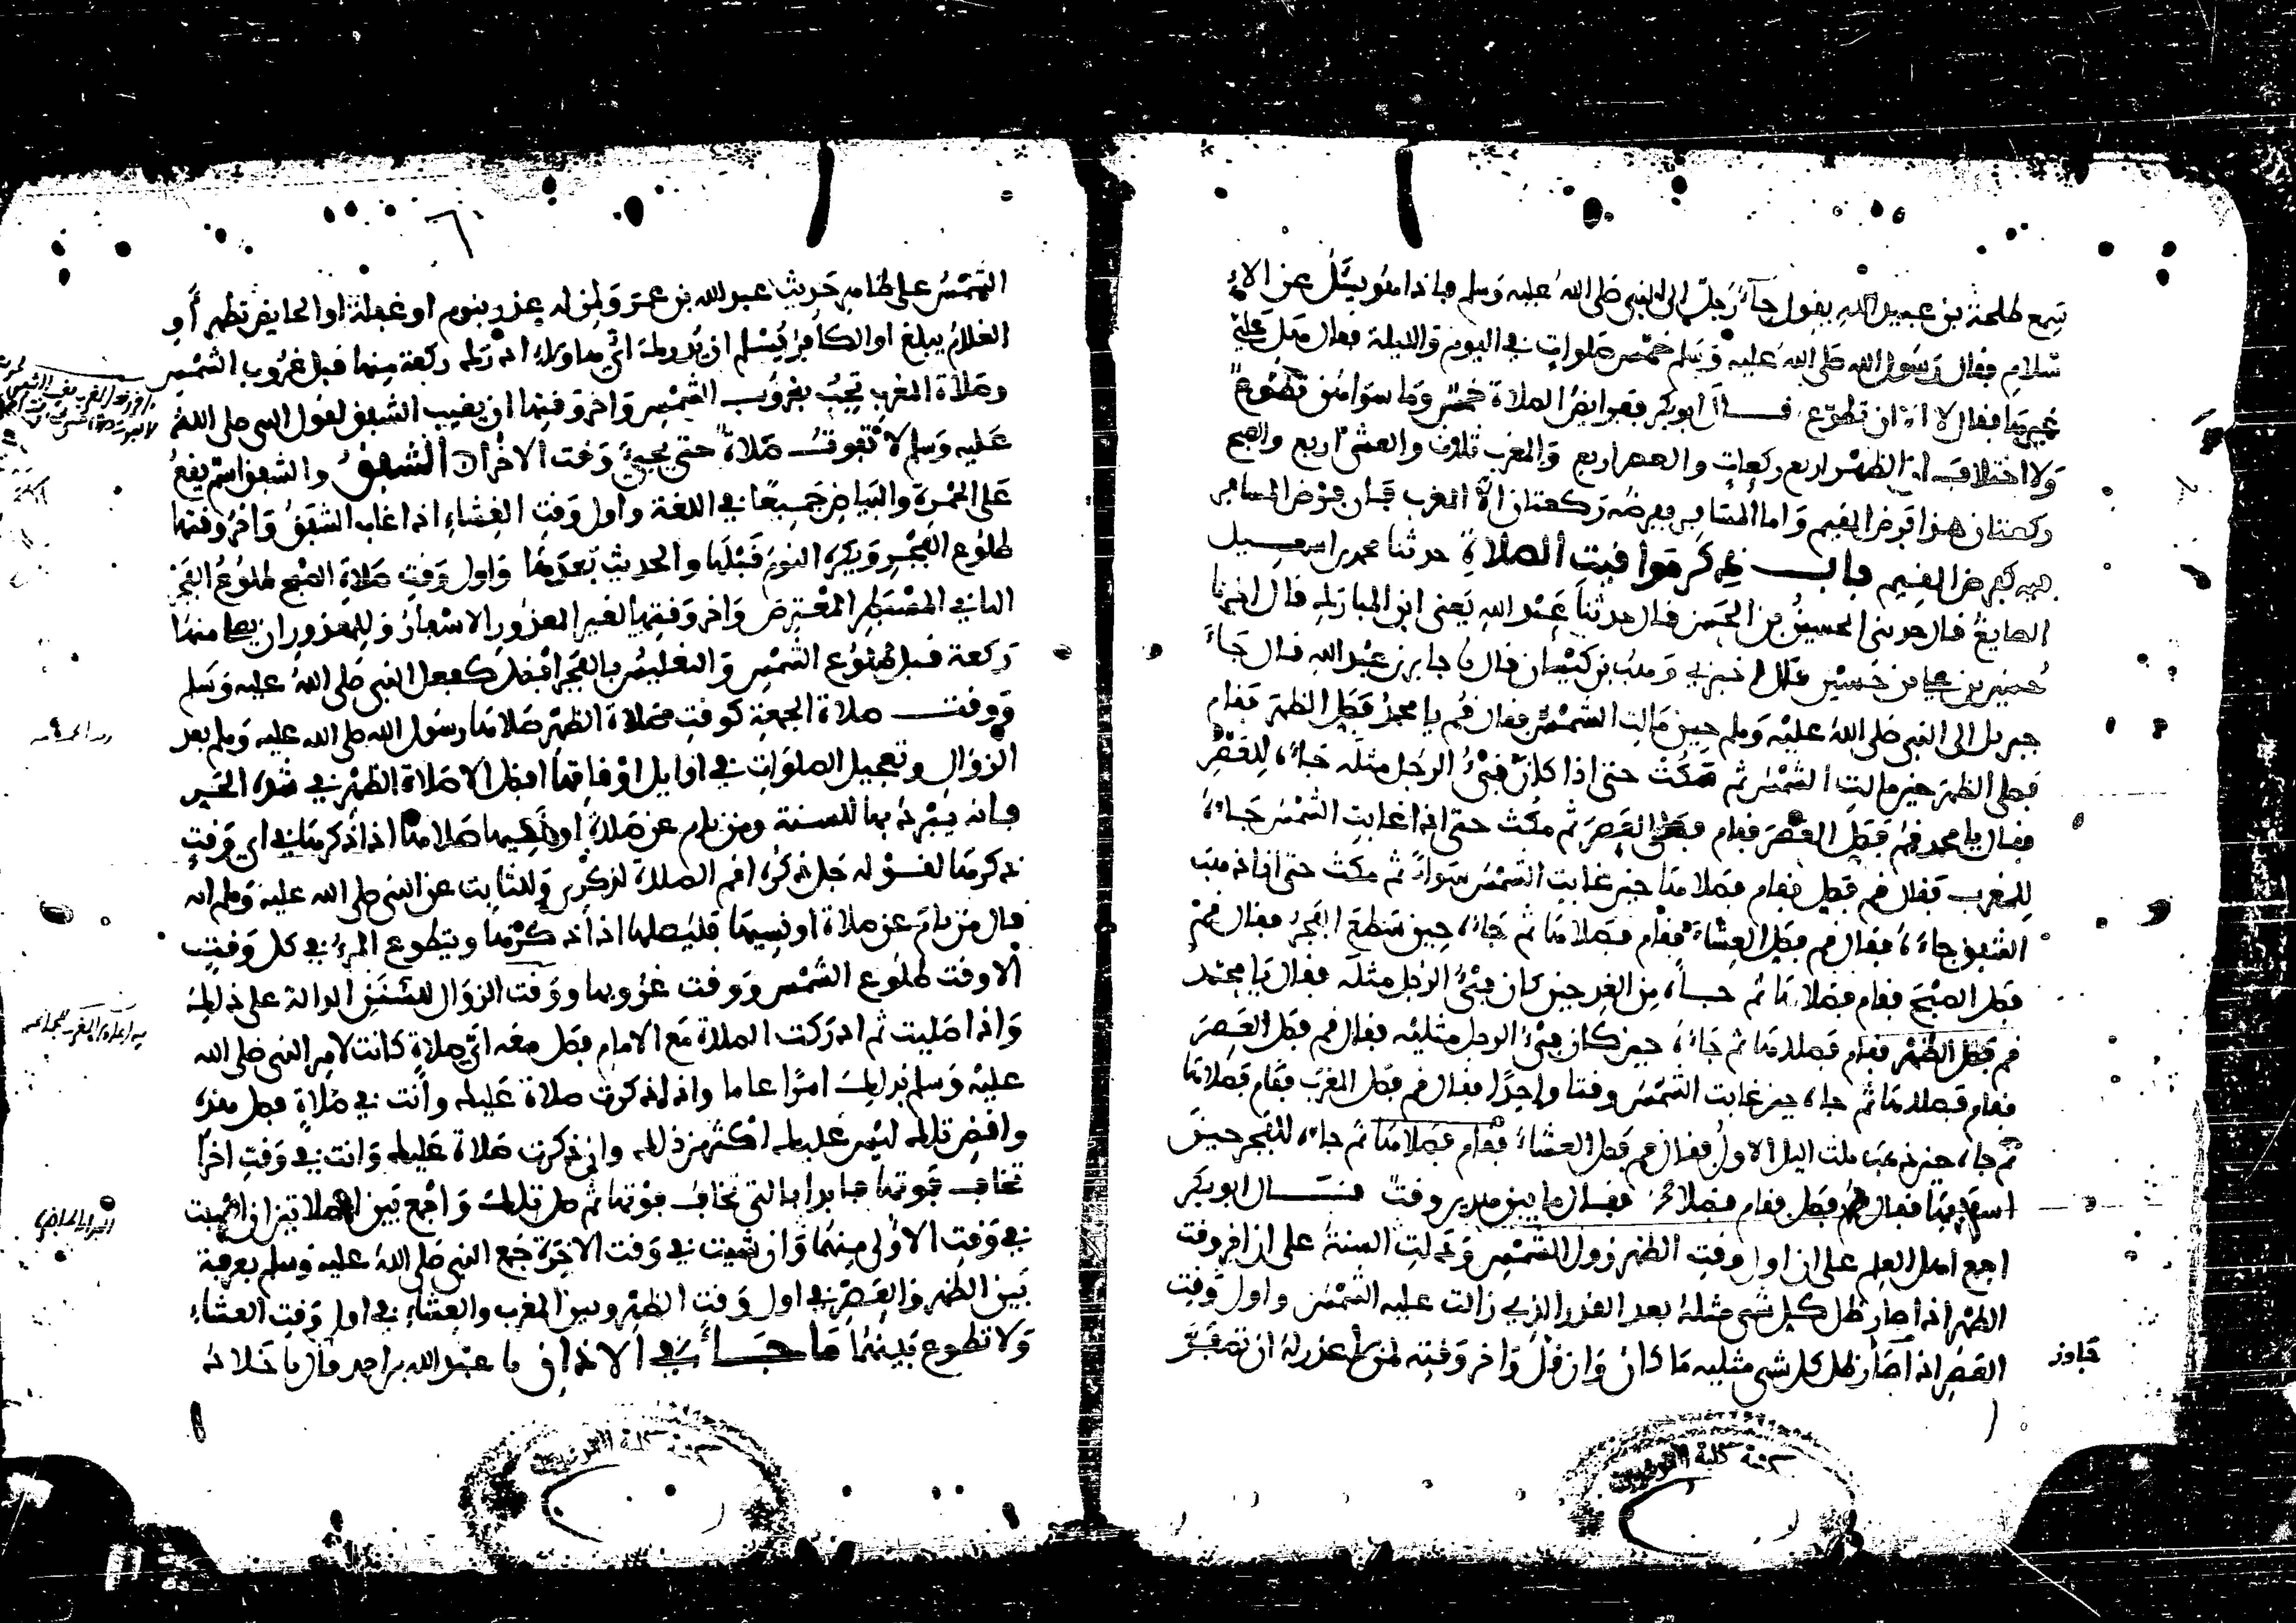 سمع طلحة بن عبيد الله يقول جاء رجل الى النبي صلى الله عليه وسلم فاذا هو يسئل عن الا
سلام فقال رسول الله صلى الله عليه وسلم خمس صلوات في اليوم والليلة فقال هل علي
غيرها فقال لا الا ان تطوع قال ابو بكر ففرايض الصلاة خمس وما سوا هن تطوع
ولا اختلاف ان الظهر اربع ركعات والعصر اربع والمغرب ثلاث والعشا اربع والصبح
ركعتان هذا فرض المقيم واما المسافر ففرضه ركعتان الا المغرب فان فرض المسافر
فيه كفرض المقيم باب ذكر مواقيت الصلاة حدثنا محمد بن اسمعيل
الصايغ قال حدثني الحسين بن الحسن قال حدثنا عبد الله يعني ابن المبارك قال اخبرنا
حسين بن علي بن حسين قال اخبرني وهب بن كيسان قال نا جابر بن عبد الله قال جاء
جبريل الى النبي صلى الله عليه وسلم حين مالت الشمس فقال قم يا محمد فصل الظهر فقام
فصلى الظهر حين مالت الشمس ثم مكث حتى اذا كان فيء الرجل مثله جاءه للعصر
فقال يا محمد قم فصل العصر فقام فصلى العصر ثم مكث حتى اذا غابت الشمس جاءه
للمغرب فقال قم فصل فقام فصلاها حين غابت الشمس سواء ثم مكث حتى اذا ذهب
الشفق جاءه فقال قم فصل العشاء فقام فصلاها ثم جاءه حين سطع الفجر فقال قم
فصل الصبح فقام فصلاها ثم جاءه من الغد حين كان فيء الرجل مثله فقال يا محمد
قم فصل الظهر فقام فصلاها ثم جاءه حين كان فيء الرجل مثليه فقال قم فصل العصر
فقام فصلاها ثم جاءه حين غابت الشمس وقتا واحدا فقال قم فصل المغرب فقام فصلاها
ثم جاءه حين ذهب ثلث اليل الاول فقال قم فصل العشاء فقام فصلاها ثم جاءه للفجر حين
اسفر فقال قم فصل فقام فصلا فقال ما بين هذين وقت قال ابو بكر
اجمع اهل العلم على ان اول وقت الظهر زول الشمس ودلت السنة على ان اخر وقت
الظهر اذا صار ظل كل شي مثله بعد القدر الذي زالت عليه الشمس واول وقت
العصر اذا صار ظل كل شي مثليه ما كان وان قل واخر وقته لمن لا عذر له ان تصفر
تجاوز
الشمس على ظاهر حديث عبد الله بن عمر ولمن له عذر بنوم او غفلة او الحايض تطهر او
الغلام يبلغ او الكافر يسلم ان يدرك اي هاولاء ادرك ركعة منها قبل غروب الشمس
وصلاة المغرب تجب بغروب الشمس واخر وقتها ان يغيب الشفق لقول النبي صلى الله
عليه وسلم لا تفوت صلاة حتى يجيء وقت الاخرا الشفق والشفق اسم يقع
على الحمرة والبياض جميعا في اللغة واول وقت العشاء اذا غاب الشفق واخر وقتها
طلوع الفجر ويكره النوم قبلها والحديث بعدها واول وقت صلاة الصبح طلوع الفجر
الثاني المستطير المعترض واخر وقتها لغير المعذور الاسفار وللمعذور ان يصلي منها
ركعة قبل طلوع الشمس والتغليس بالفجر افضل كفعل النبي صلى الله عليه وسلم
ووقت صلاة الجمعة كوقت صلاة الظهر صلاها رسول الله صلى الله عليه وسلم بعد
الزوال وتعجيل الصلوات في اوايل اوقاتها افضل الا صلاة الظهر في شدة الحر
فانه يبرد بها للسنة ومن نام عن صلاة او نسيها صلاها اذا ذكرها في اي وقت
ذكرها لقوله جل ذكره اقم الصلاة لذكري وللثابت عن النبي صلى الله عليه وسلم انه
قال من نام عن صلاة او نسيها فليصلها اذا ذكرها ويتطوع المرء في كل وقت
الا وقت طلوع الشمس ووقت غروبها ووقت الزوال للسنن الدالة على ذلك
واذا صليت ثم ادركت الصلاة مع الامام فصل معه اي صلاة كانت لامر النبي صلى الله
عليه وسلم بذلك امرا عاما واذا ذكرت صلاة عليك وانت في صلاة فصل هذه
واقض تلك ليس عليك اكثر من ذلك وان ذكرت صلاة عليك وانت في وقت اخرا
تخاف فوتها فابدا بالتي تخاف فوتها ثم صل تلك واجمع بين الصلاتين ان شيت
في وقت الاولى منهما وان شيت في وقت الاخرة جمع النبي صلى الله عليه وسلم بعرفة
بين الظهر والعصر في اول وقت الظهر وبين المغرب والعشاء في اول وقت العشاء
ولا تطوع بينهما ما جاء في الاذان نا عبد الله بن احمد قال نا خلاد